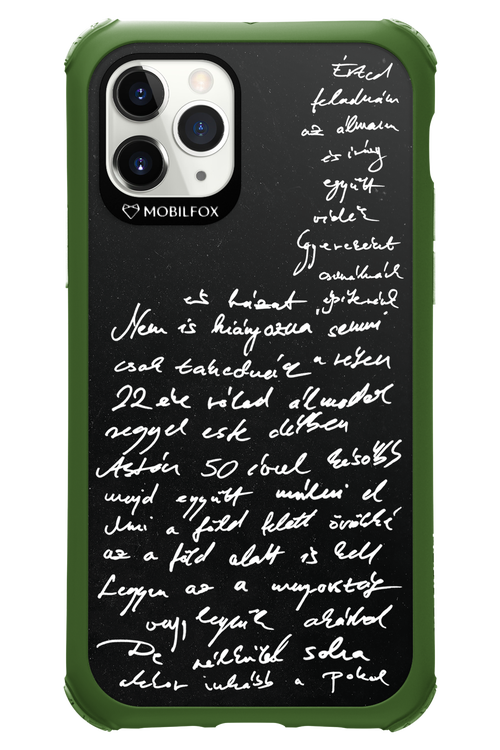 MOBILFOX
Érted
feladnám
az álmaim
és így
együtt
vidék
Gyereseket
csinálnánk
és házat építenénk
Nem is hiányozna semmi
csak tekednék a réten
22 éve rólad álmodok
reggel este délben
Aztán 50 évvel később
majd együtt múlni el
Ami a föld felett örökké
az a föld alatt is kell
Legyen az a mennyország
vagy legyünk akárhol
De nélküled soha
akkor inkább a pokol